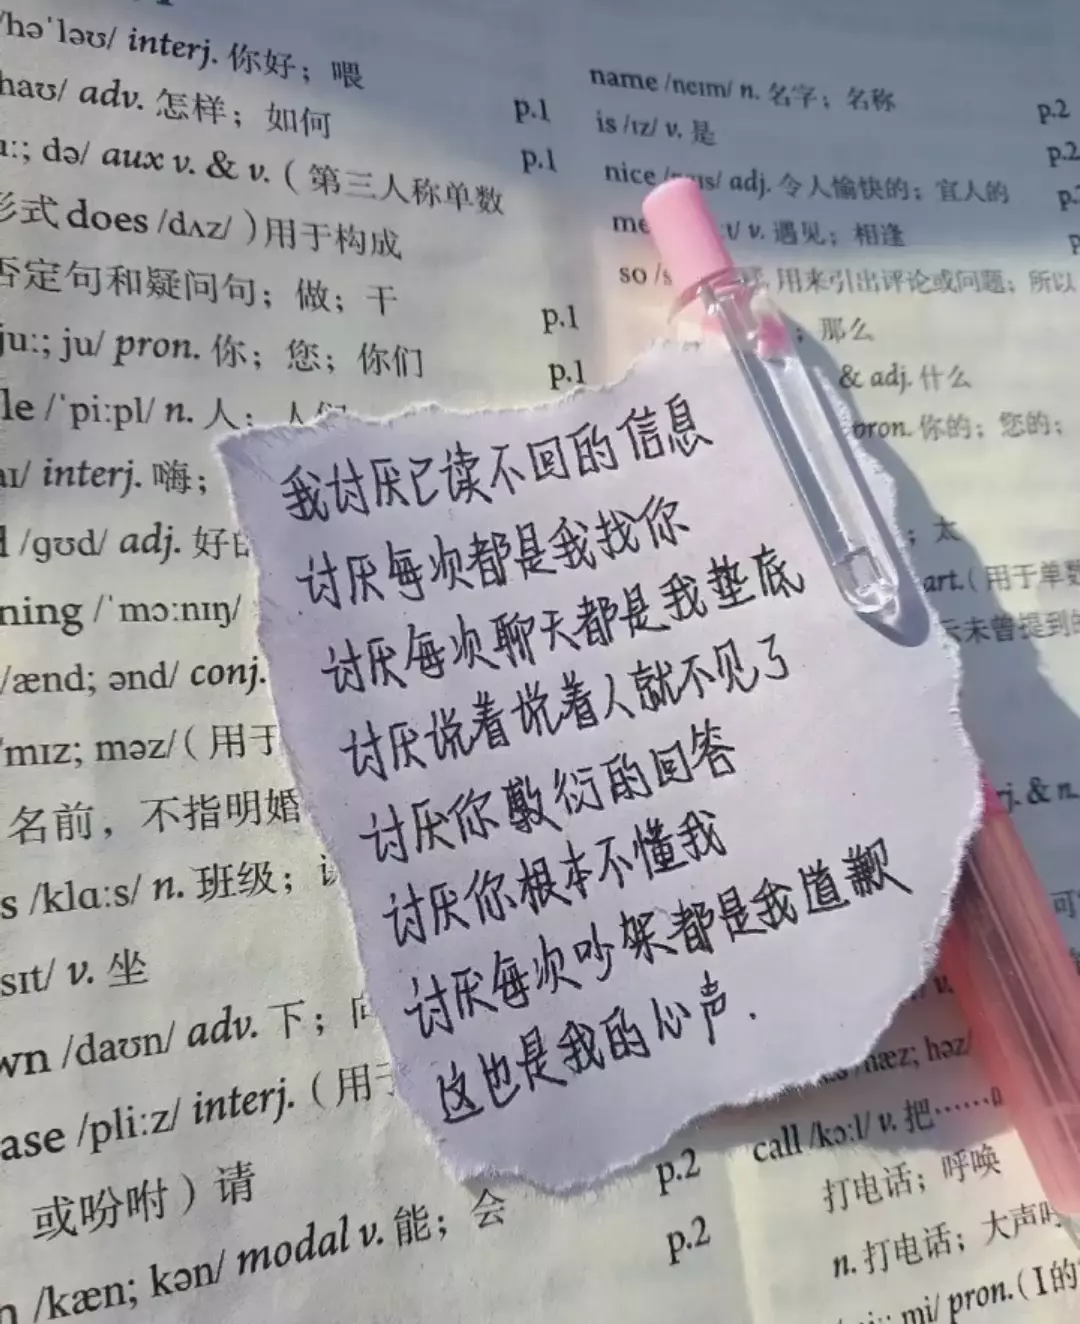 /həˈləʊ/ interj. 你好；喂
haʊ/ adv. 怎样；如何
p.1
də/ aux v. & v.（第三人称单数
p.1
形式 does /dʌz/ ）用于构成
否定句和疑问句；做；干
p.1
juː; ju/ pron. 你；您；你们
p.1
le /ˈpiːpl/ n. 人；人们
aɪ/ interj. 嗨；
/ɡʊd/ adj. 好
ning /ˈmɔːnɪŋ/
/ænd; ənd/ conj.
mɪz; məz/（用于
名前，不指明婚
s /klɑːs/ n. 班级；
sɪt/ v. 坐
wn /daʊn/ adv. 下；向
ase /pliːz/ interj.（用于
或吩咐）请
p.2
n /kæn; kən/ modal v. 能；会
p.2
name /neɪm/ n. 名字；名称
p.2
is /ɪz/ v. 是
p.2
nice adj. 令人愉快的；宜人的
v. 遇见；相逢
so 用来引出评论或问题；所以
；那么
& adj. 什么
pron. 你的；您的；
；太
art.（用于单数
未曾提到的
我讨厌已读不回的信息
讨厌每次都是我找你
讨厌每次聊天都是我垫底
讨厌说着说着人就不见了
讨厌你敷衍的回答
讨厌你根本不懂我
讨厌每次吵架都是我道歉
这也是我的心声.
& n.
可
v.
hæz; həz/
call /kɔːl/ v. 把……
打电话；呼唤
n. 打电话；大声呼
mi/ pron.（I的